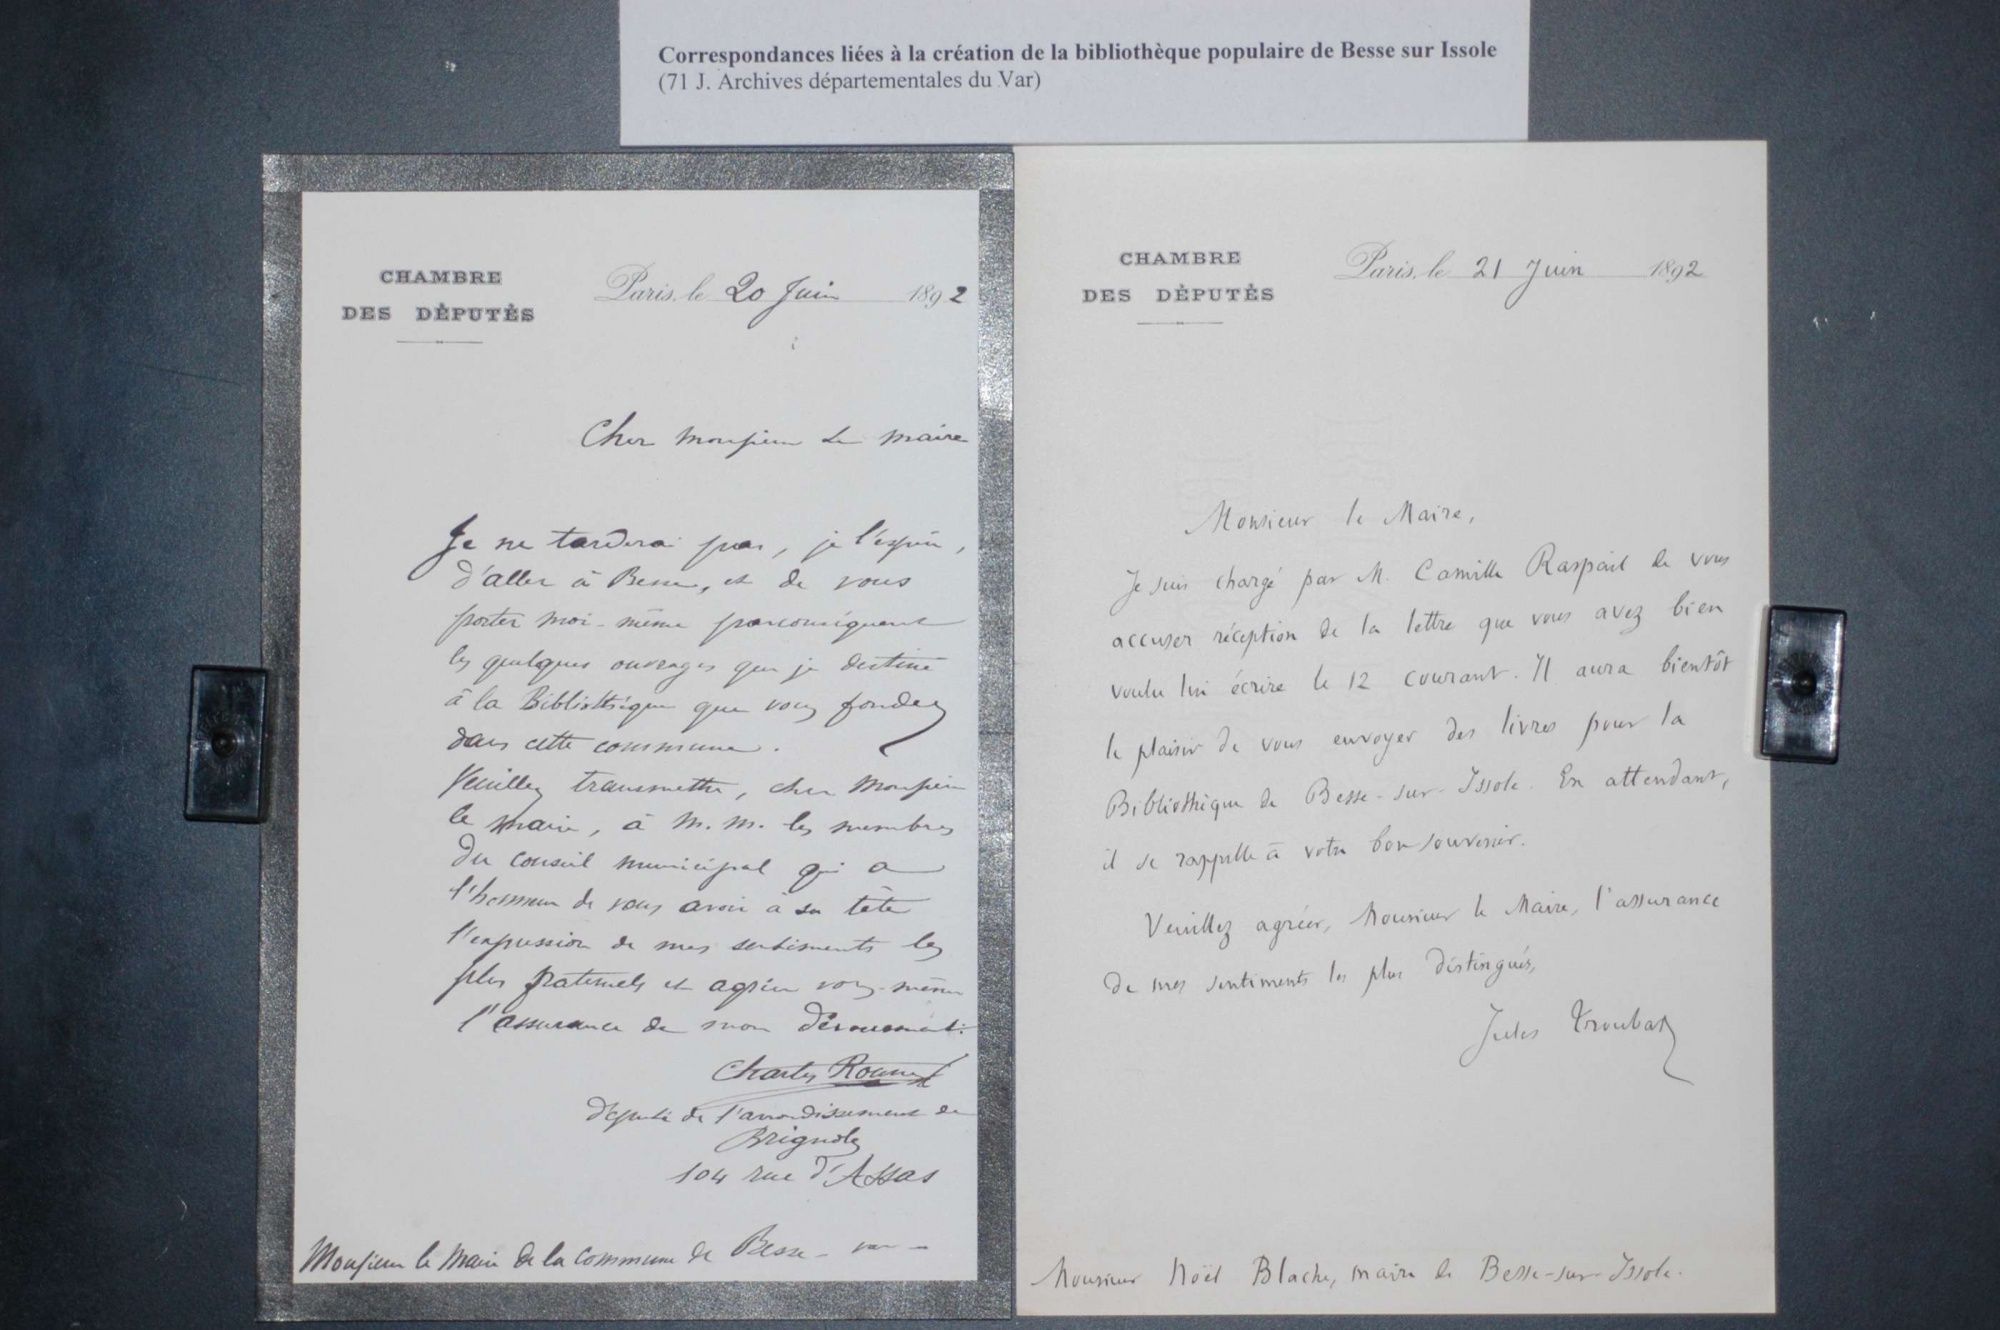 Correspondances liées à la création de la bibliothèque populaire de Besse sur Issole
(71 J. Archives départementales du Var)
CHAMBRE
DES DÉPUTÉS
Paris, le 20 Juin 1892
Cher monsieur le maire
Je ne tarderai pas, je l'espère,
d'aller à Besse, et de vous
porter moi-même parconséquent
les quelques ouvrages que je destine
à la Bibliothèque que vous fondez
dans cette commune.
Veuillez transmettre, cher Monsieur
le maire, à M. M. les membres
du conseil municipal qui a
l'honneur de vous avoir à sa tête
l'expression de mes sentiments les
plus fraternels et agréer vous-même
l'assurance de mon dévouement.
Charles Rousse
député de l'arrondissement de
Brignoles
104 rue d'Assas
Monsieur le Maire de la Commune de Besse - var -
CHAMBRE
DES DÉPUTÉS
Paris, le 21 Juin 1892
Monsieur le Maire,
Je suis chargé par M. Camille Raspail de vous
accuser réception de la lettre que vous avez bien
voulu lui écrire le 12 courant. Il aura bientôt
le plaisir de vous envoyer des livres pour la
Bibliothèque de Besse-sur-Issole. En attendant,
il se rappelle à votre bon souvenir.
Veuillez agréer, Monsieur le Maire, l'assurance
de mes sentiments les plus distingués,
Jules Troubat
Monsieur Noël Blache, maire de Besse-sur-Issole.